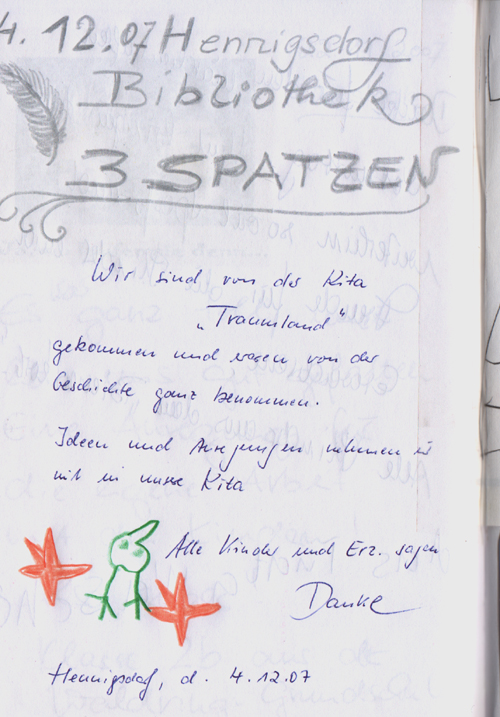 4.12.07 Hennigsdorf
Bibliothek
3 SPATZEN
Wir sind von der Kita
„Traumland“
gekommen und waren von der
Geschichte ganz benommen.
Ideen und Anregungen nehmen wir
mit in unsere Kita
Alle Kinder und Erz. sagen
Danke
Hennigsdorf, d. 4.12.07